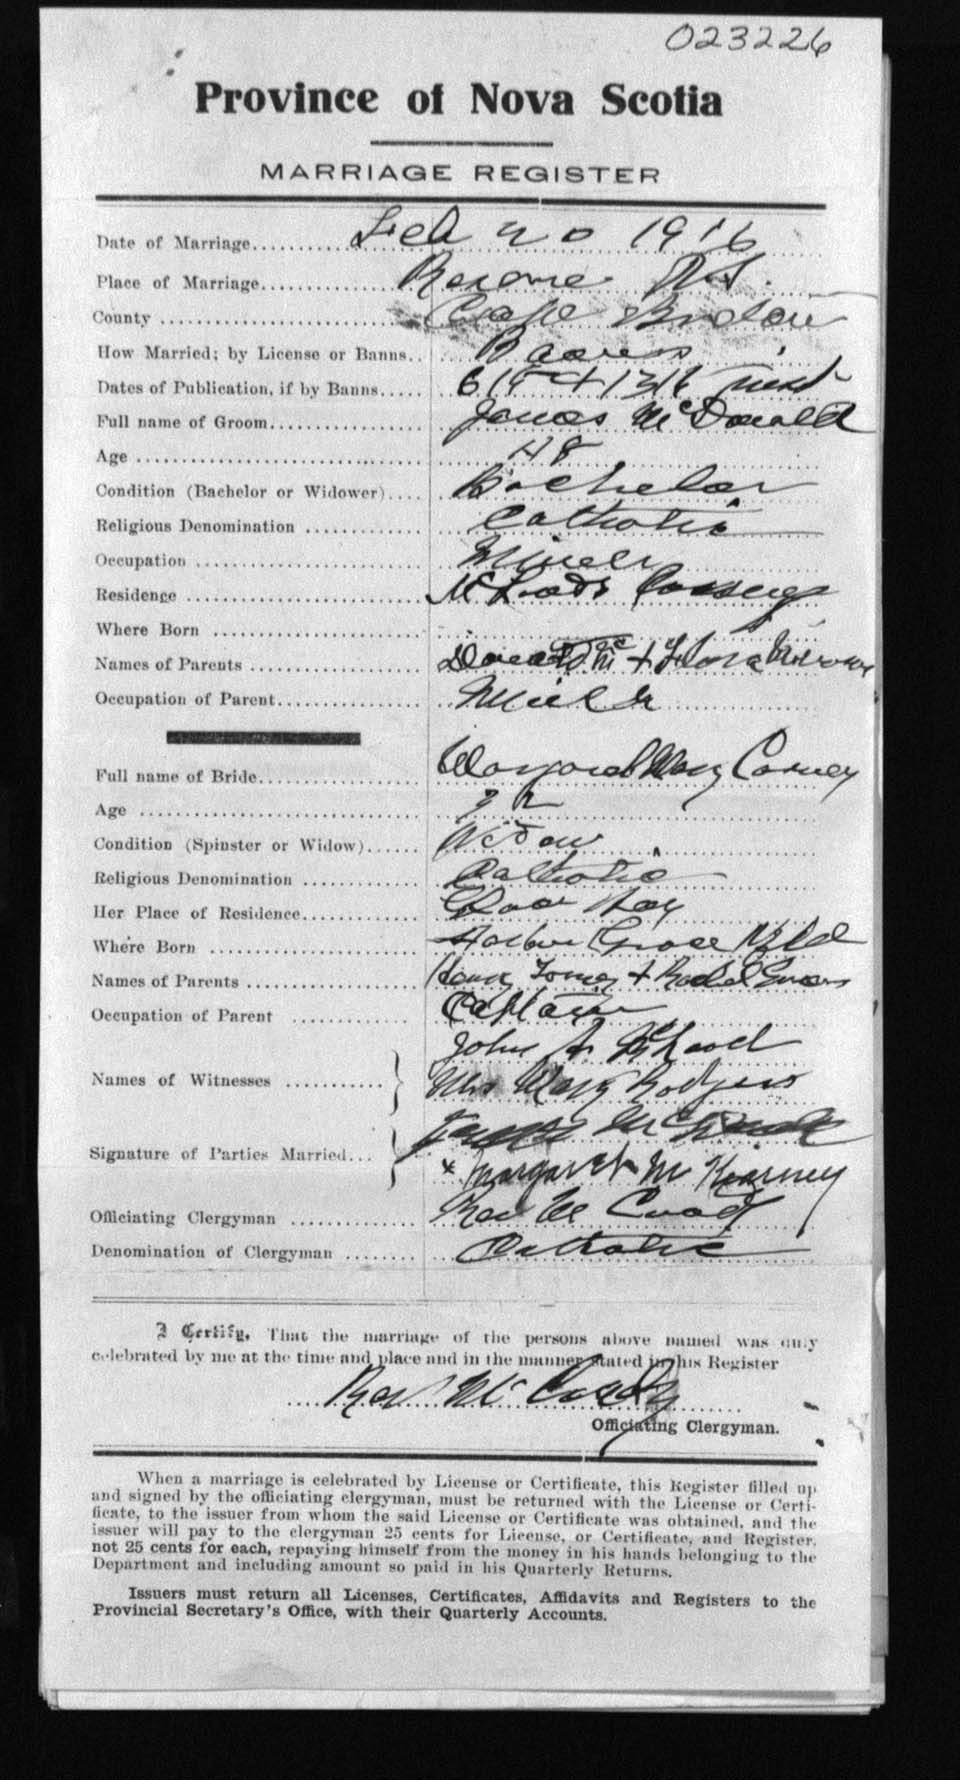 023226
Province of Nova Scotia
MARRIAGE REGISTER
Date of Marriage Feb 20 1916
Place of Marriage Reserve N.S.
County Cape Breton
How Married; by License or Banns Banns
Dates of Publication, if by Banns 6 13
Full name of Groom James McDonald
Age 48
Condition (Bachelor or Widower) Bachelor
Religious Denomination Catholic
Occupation Miner
Residence McLeods Crossing
Where Born
Names of Parents Donald Mc + Flora
Occupation of Parent Miner
Full name of Bride Margaret Mary Carney
Age 32
Condition (Spinster or Widow) Widow
Religious Denomination Catholic
Her Place of Residence Glace Bay
Where Born Harbor Grace Nfld
Names of Parents Henry + Rachel
Occupation of Parent Captain
John A McLeod
Names of Witnesses
Mrs Mary Rodgers
James McDonald
Signature of Parties Married
x Margaret M Kearney
Officiating Clergyman Rev
Denomination of Clergyman Catholic
I Certify, That the marriage of the persons above named was duly
celebrated by me at the time and place and in the manner stated in his Register
Rev
Officiating Clergyman.
When a marriage is celebrated by License or Certificate, this Register filled up
and signed by the officiating clergyman, must be returned with the License or Certi-
ficate, to the issuer from whom the said License or Certificate was obtained, and the
issuer will pay to the clergyman 25 cents for License, or Certificate, and Register,
not 25 cents for each, repaying himself from the money in his hands belonging to the
Department and including amount so paid in his Quarterly Returns.
Issuers must return all Licenses, Certificates, Affidavits and Registers to the
Provincial Secretary's Office, with their Quarterly Accounts.